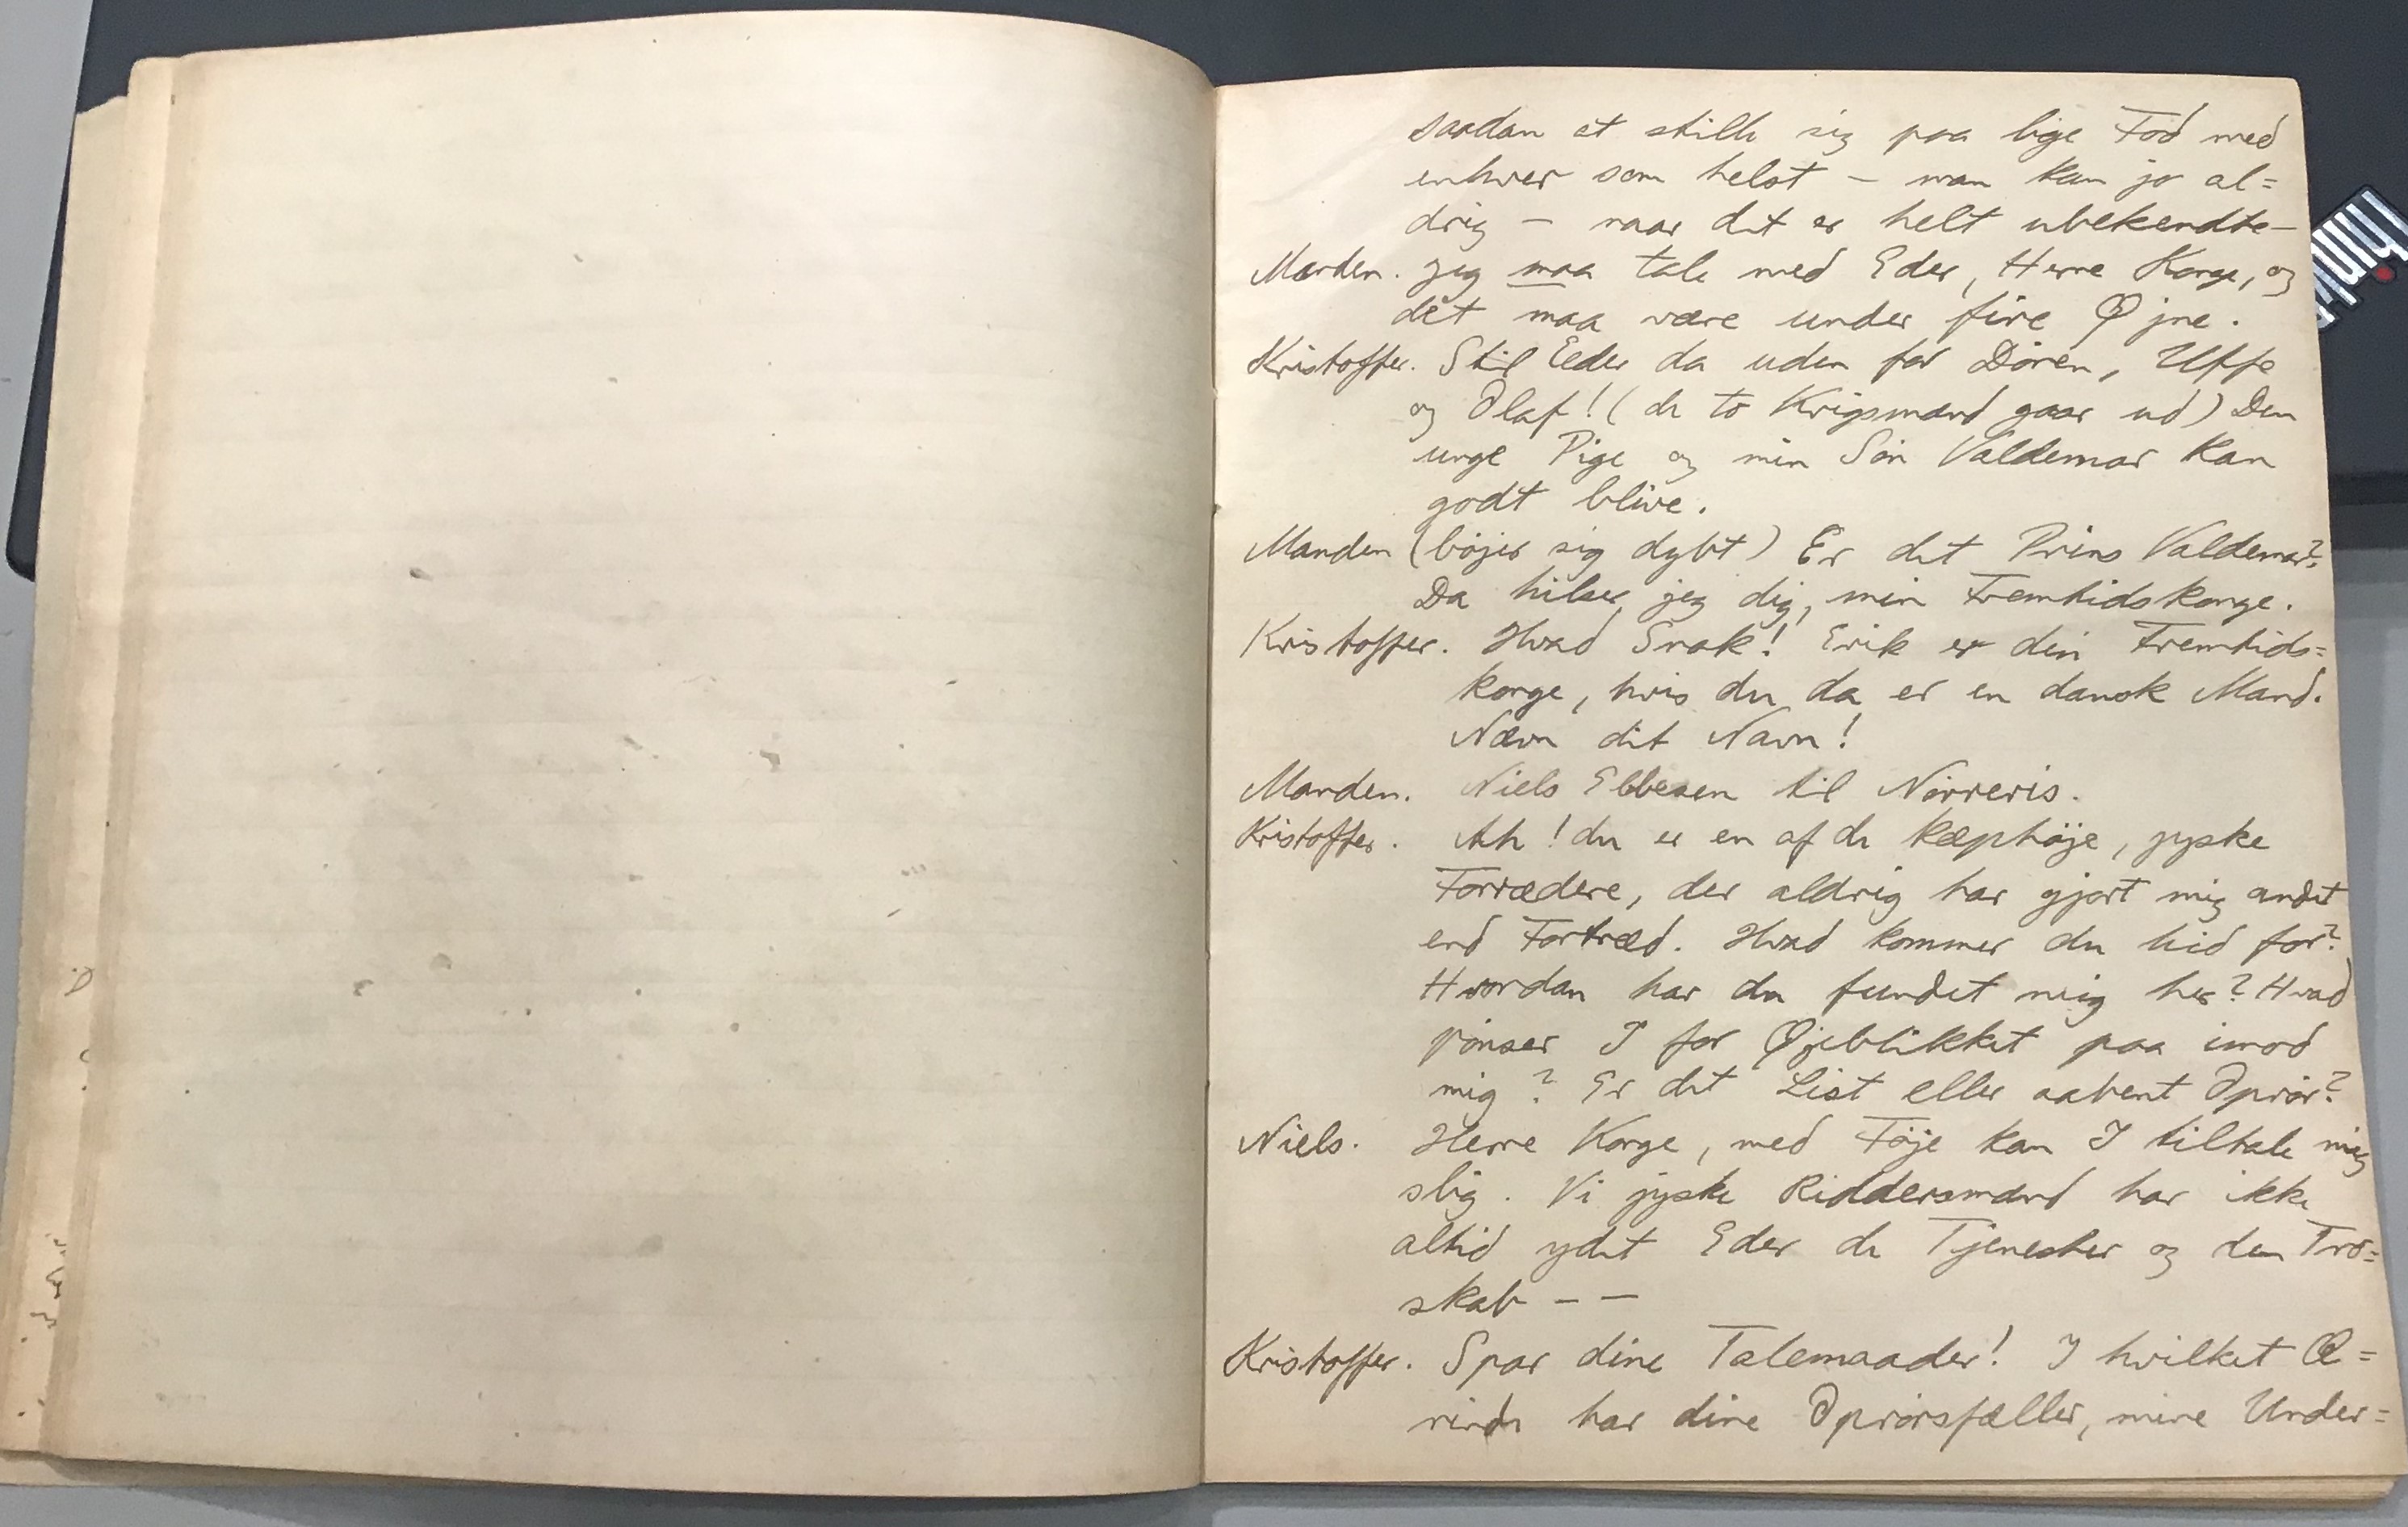 saadan at stille sig paa lige Fod med
enhver som helst – man kan jo al=
drig – naar det er helt ubekendte –
Manden. Jeg maa tale med Eder, Herre Konge, og
det maa være under fire Øjne.
Kristoffer. Stil Eder da uden for Dören, Uffe
og Olaf! (de to Krigsmænd gaar ud) Den
unge Pige og min Sön Valdemar kan
godt blive.
Manden (böjer sig dybt) Er det Prins Valdemar?
Da hilser jeg dig, min Fremtidskonge.
Kristoffer. Hvad Snak! Erik er din Fremtids=
konge, hvis du da er en dansk Mand.
Nævn dit Navn!
Manden. Niels Ebbesen til Nörreris.
Kristoffer. Ah! du er en af de kæphöje, jyske
Forrædere, der aldrig har gjort mig andet
end Fortræd. Hvad kommer du hid for?
Hvordan har du fundet mig her? Hvad
pönser I for Øjeblikket paa imod
mig? Er det List eller aabent Oprör?
Niels. Herre Konge, med Föje kan I tiltale mig
slig. Vi jyske Riddersmænd har ikke
altid ydet Eder de Tjenester og den Tro=
skab – –
Kristoffer. Spar dine Talemaader! I hvilket Æ=
rinde har dine Oprörsfæller, mine Under=